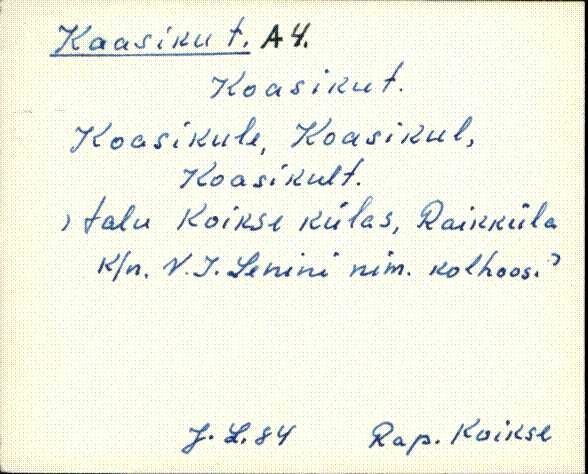 Kaasikut. A4.
Koasikut.
Koasikule, Koasikul,
Koasikult.
) talu Koikse külas, Raikküla
k/n. V. I. Lenini nim. kolhoos.?
J. L. 84 Rap. Koikse